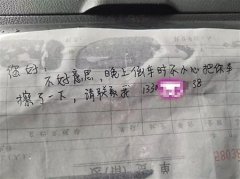 您好:
不好意思,晚上倒车时不小心把你车
擦了一下,请联系我 1330 58